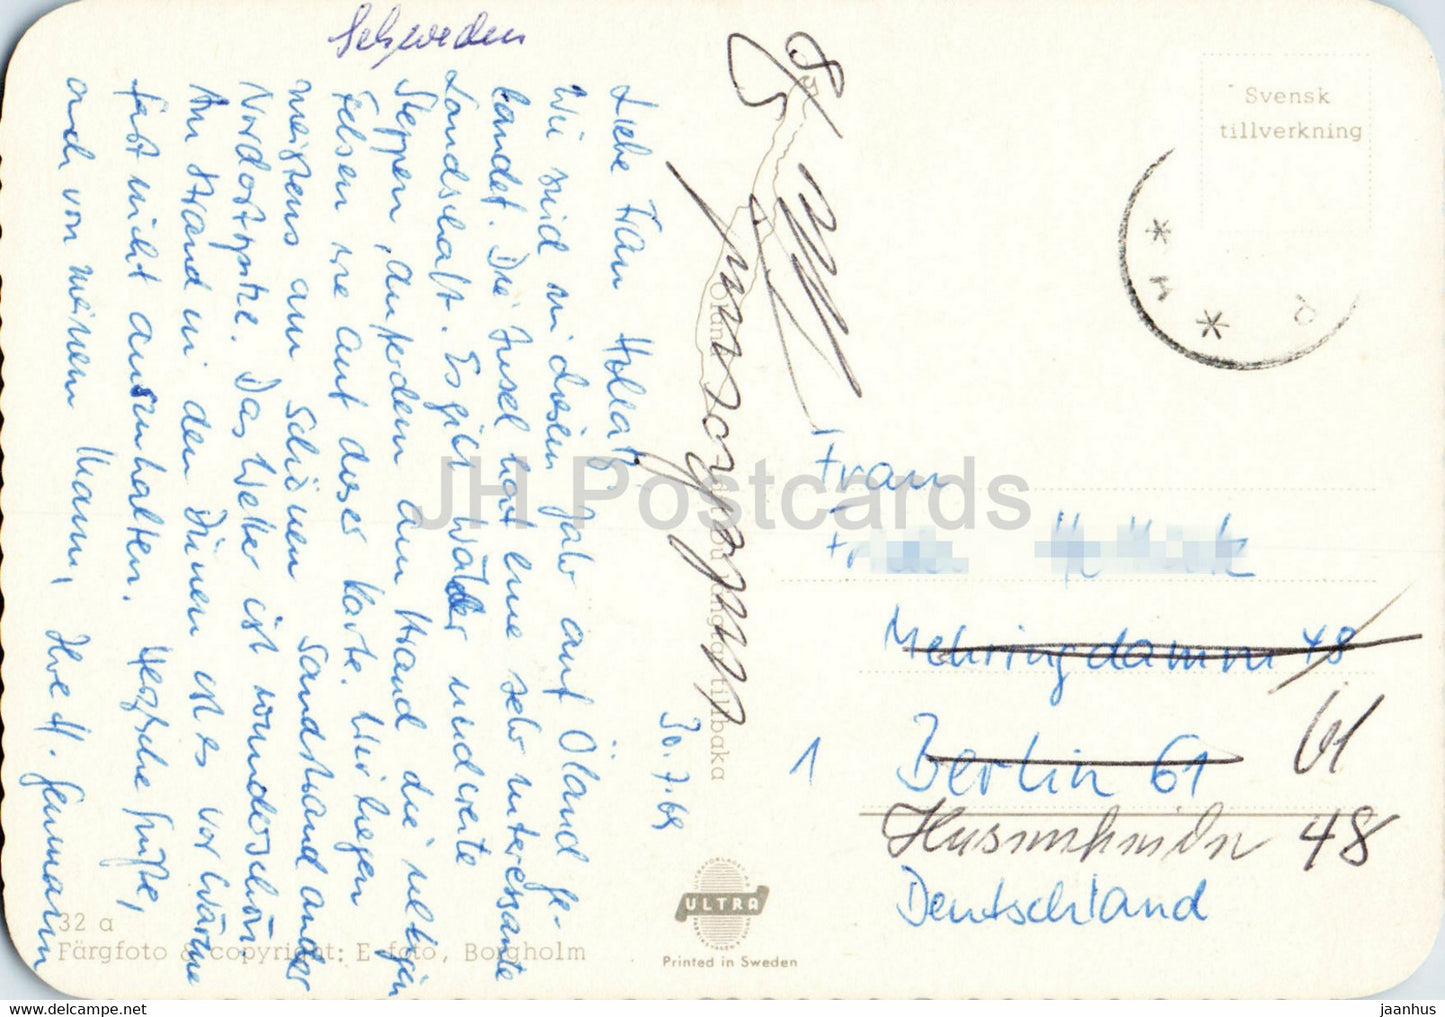 Schweden
30.7.69
Liebe Frau
Wir sind in diesem Jahr auf Öland ge-
landet. Die Insel hat eine sehr interessante
Landschaft. Es gibt Wälder und weite
Steppen, außerdem am Strand die selbigen
Felsen wie auf dieser Karte. Wir liegen
meistens am Schönen Sandstrand an der
Nordostspitze. Das Wetter ist wunderschön
Am Strand in den Dünen ist es vor Wärme
fast nicht auszuhalten. Herzliche Grüße,
auch von meinem Mann, Ihre H.
Svensk
tillverkning
Frau
Mehringdamm 48
1 Berlin 61
61
48
Deutschland
Öland
32 a
Färgfoto & copyright: E-foto, Borgholm
ULTRA
Printed in Sweden
JH Postcards
https://www.hippostcard.com/
jaanhus